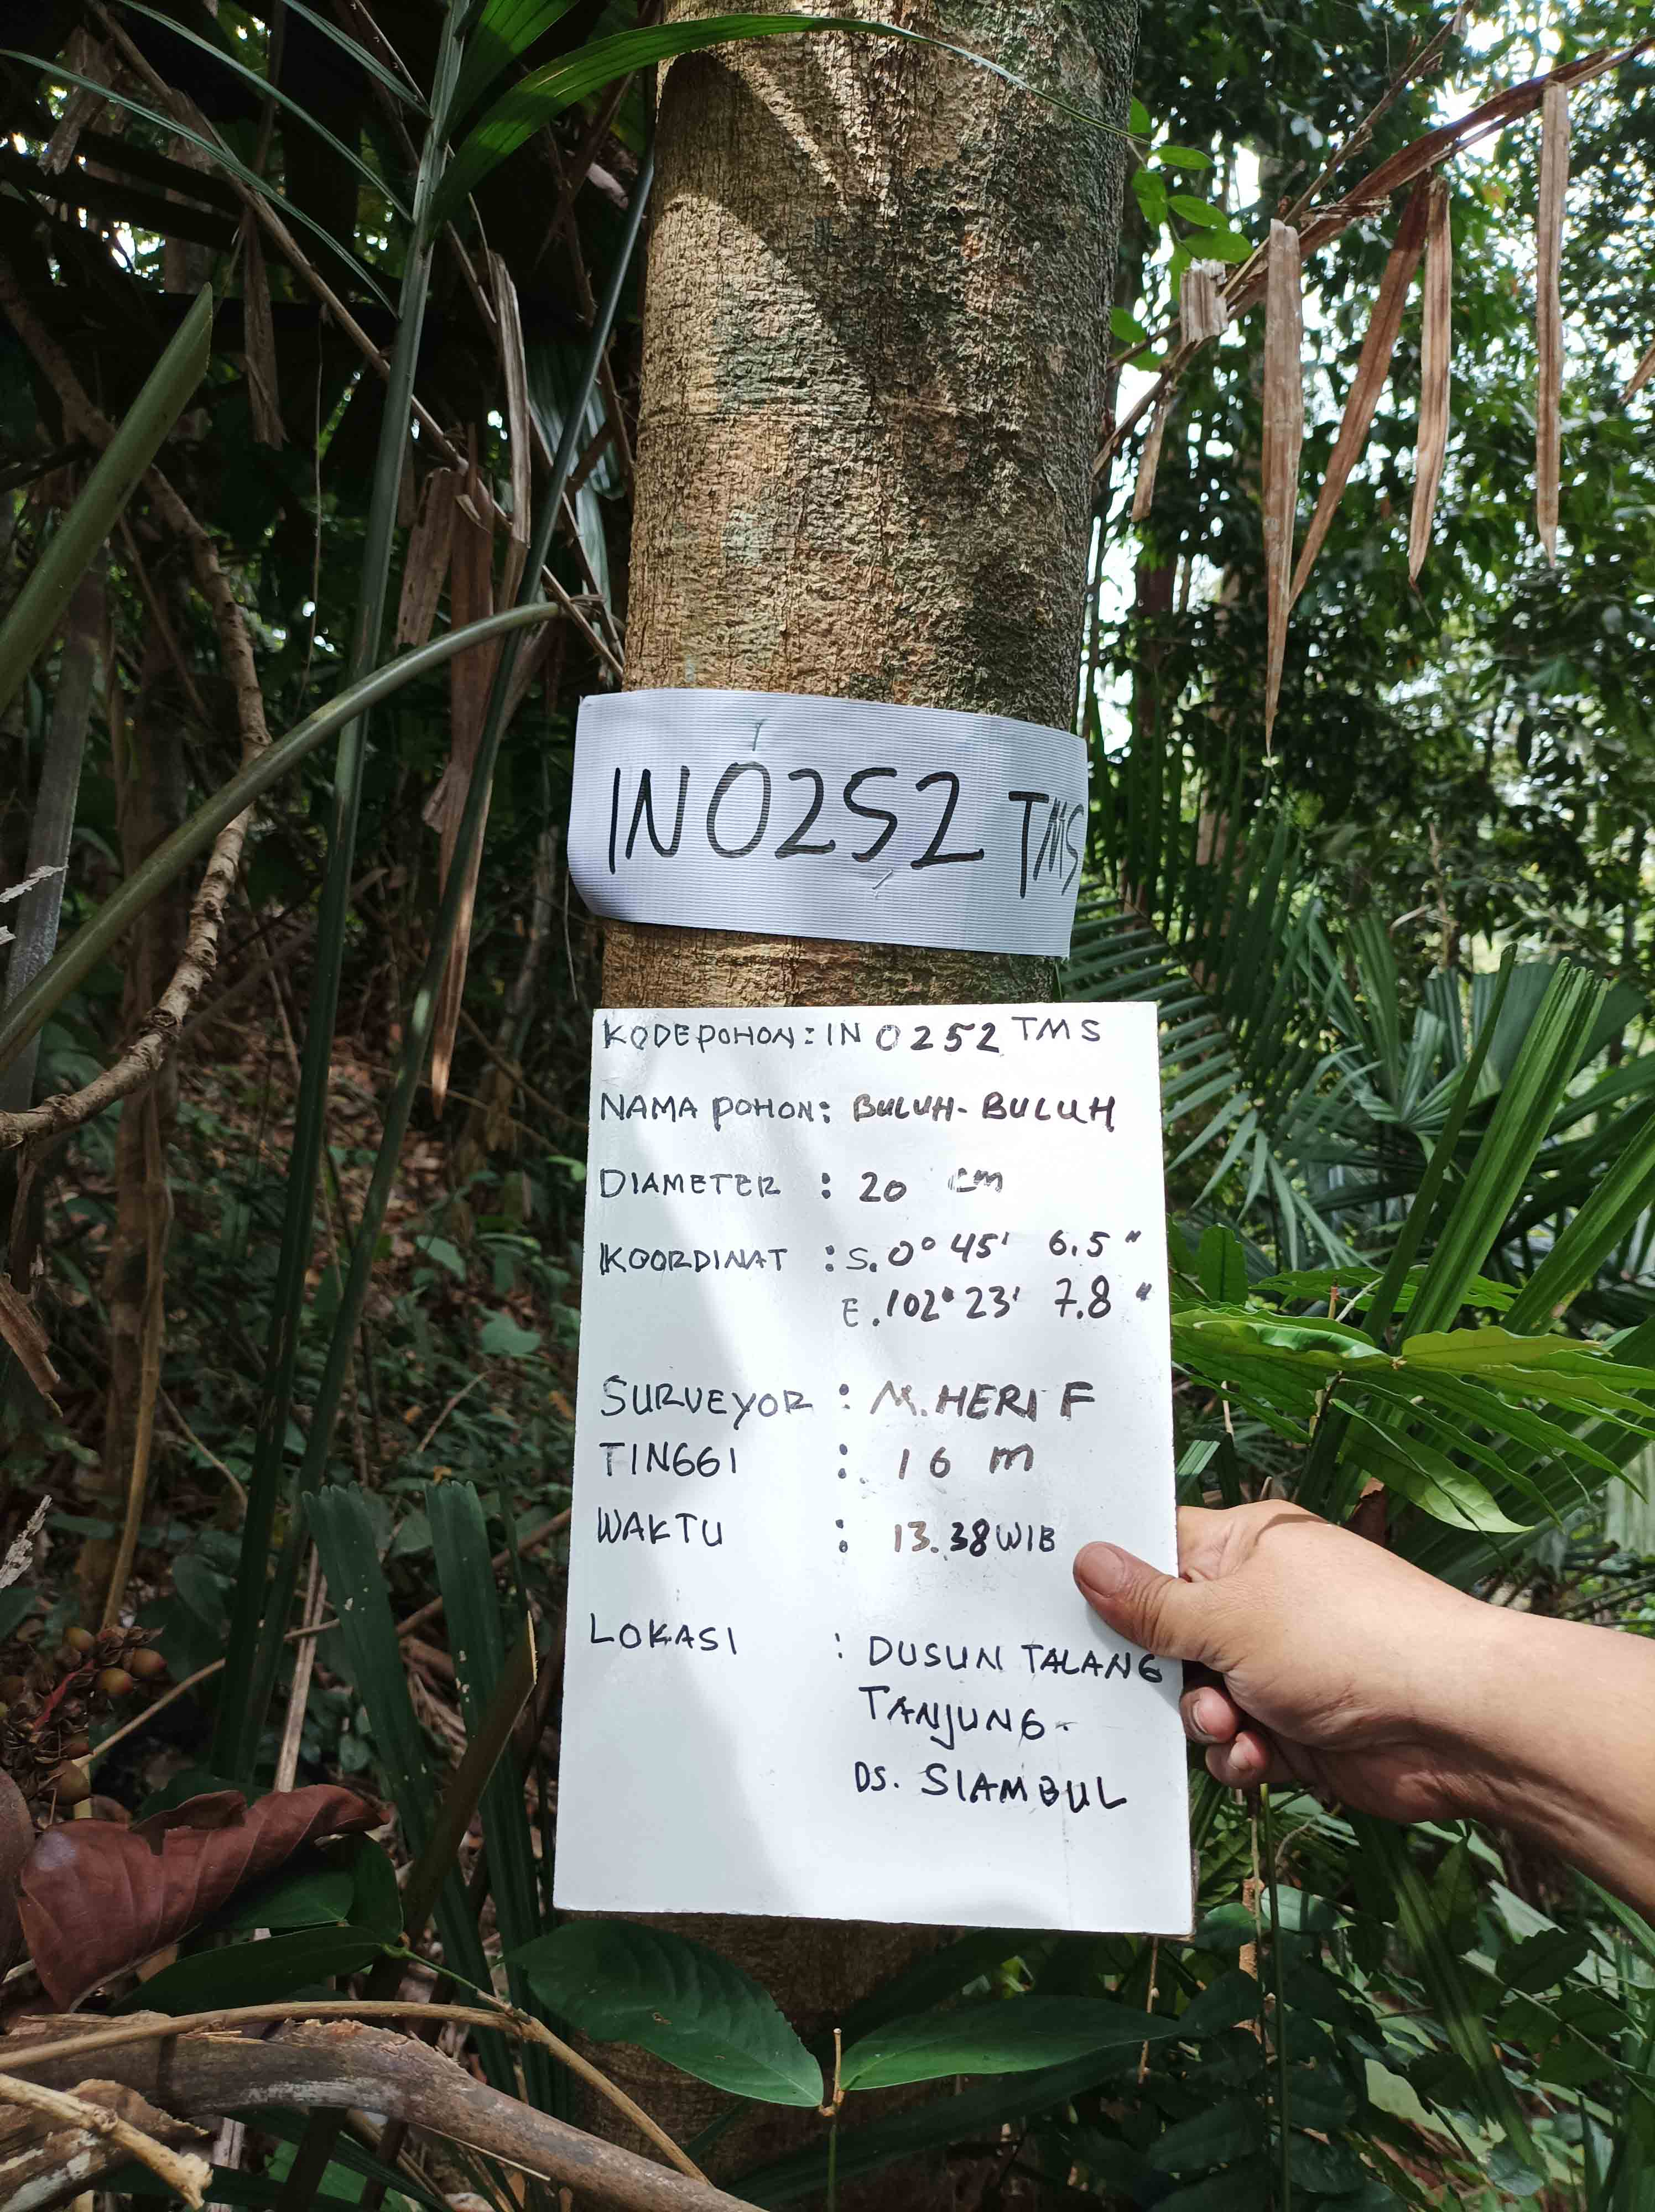 IN 0252 TMS
KODE POHON : IN 0252 TMS
NAMA POHON : BULUH-BULUH
DIAMETER : 20 cm
KOORDINAT : S. 0° 45' 6.5"
E. 102° 23' 7.8"
SURVEYOR : M. HERI F
TINGGI : 16 m
WAKTU : 13.38 WIB
LOKASI : DUSUN TALANG
TANJUNG-
DS. SIAMBUL